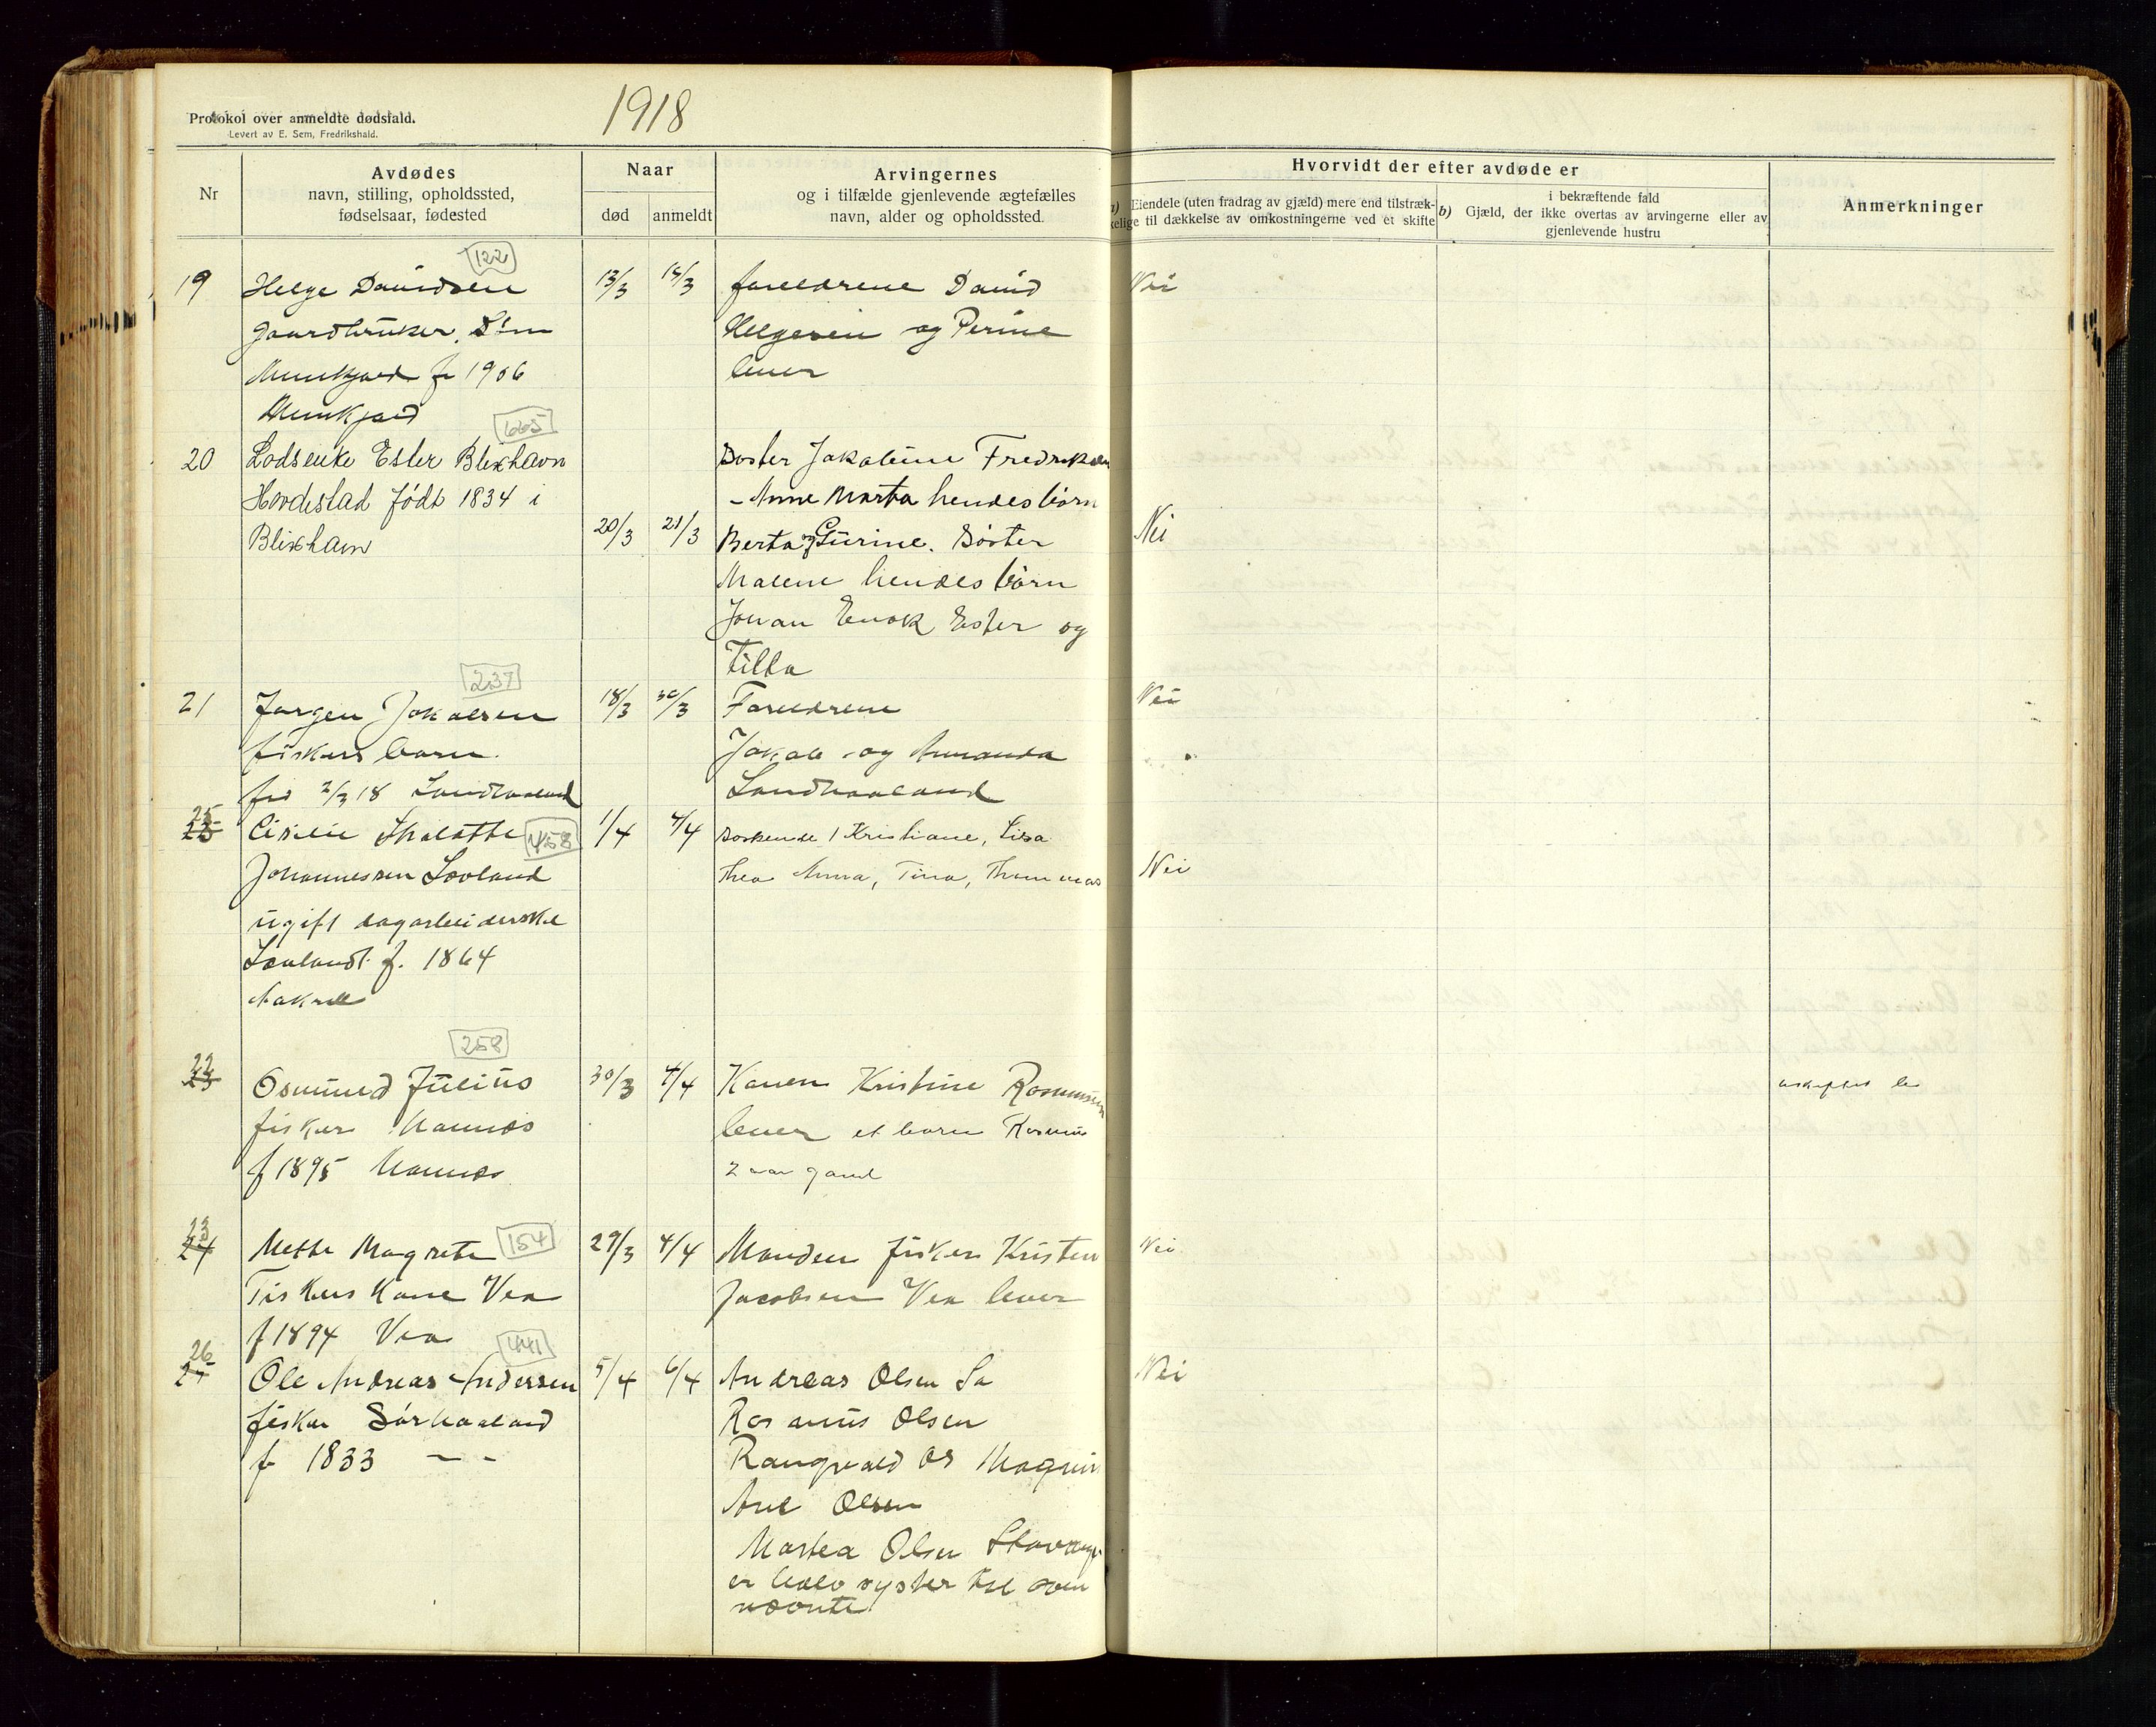 1918
Protokol over anmeldte dødsfald.
Levert av E. Sem, Fredrikshald.
Nr
Avdødes
navn, stilling, opholdssted,
fødselsaar, fødested
Naar
død
anmeldt
Arvingernes
og i tilfælde gjenlevende ægtefælles
navn, alder og opholdssted.
Hvorvidt der efter avdøde er
a) Eiendele (uten fradrag av gjæld) mere end tilstræk-
kelige til dækkelse av omkostningerne ved et skifte
i bekræftende fald
b) Gjæld, der ikke overtas av arvingerne eller av
gjenlevende hustru
Anmerkninger
122
19 Helge Davidsen 13/3 14/3 forældrene David Nei
gaardbruker. Helgesen og Perine
Munkjord f 1906 lever
Munkjord
665
20 Lodsenke Ester Blixhavn Søster Jakobine Fredriksen
Hovdestad født 1834 i - Anne Marta hendes børn
Blixhavn 20/3 21/3 Berta og Gurine. Søster Nei
Malene hendes børn
Johan Enok Ester og
Tilla
237
21 Jørgen Jakobsen 18/3 30/3 Forældrene Nei
fiskers barn Jakob og Amanda
fød 2/3 18 Sandhaaland Sandhaaland
25 458 1/4 4/4 Søskende Kristiane, Lisa
Johannessen Lovland Thea Anna, Tina, Thommas Nei
ugift dagarbeiderske
f. 1864
258
22 Osmund Julius 30/3 4/4 Konen Kristine Rasmussen
fisker Havnnæs lever et barn Rasmus
f 1895 Havnnæs 2 aar gaml
23
24 Mette Magrete 154 29/3 4/4 Manden fisker Kristen Nei
Fiskers Kone Vea Jacobsen Vea lever
f 1894 Vea
441
26 Ole Andreas Andersen 5/4 6/4 Andreas Olsen Nei
fisker Sørhaaland Rasmus Olsen
f 1833 - - Rangvald
Olsen
Martea Olsen Stavanger
er halvsyster til oven
nævnte